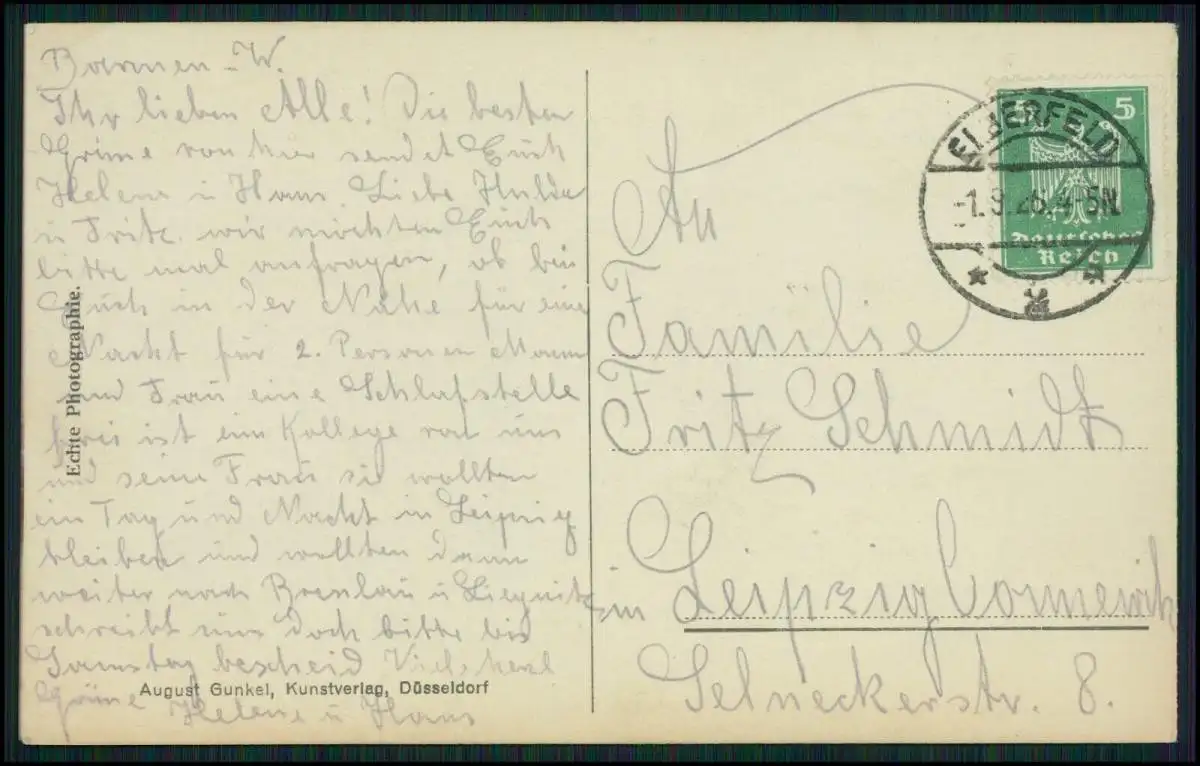 Barmen - W.
Ihr lieben Alle! Die besten
Grüsse von hier sendet Euch
Helene u Hans. Liebe Hulda
u Fritz. wir möchten Euch
bitte mal anfragen, ob bei
Euch in der Nähe für eine
Nacht für 2. Personen Mann
und Frau eine Schlafstelle
frei ist ein Kollege von uns
und seine Frau sie wollten
ein Tag und Nacht in Leipzig
bleiben und wollten dann
weiter nach Breslau u Liegnitz
schreibt uns doch bitte bis
Samstag bescheid Viele herzl
Grüsse
Helene u Hans
Echte Photographie.
August Gunkel, Kunstverlag, Düsseldorf
ELBERFELD
-1.9.26.4-5N.
5 5
Deutsches
Reich
An
Familie
Fritz Schmidt
in Leipzig Connewitz
Selneckerstr. 8.